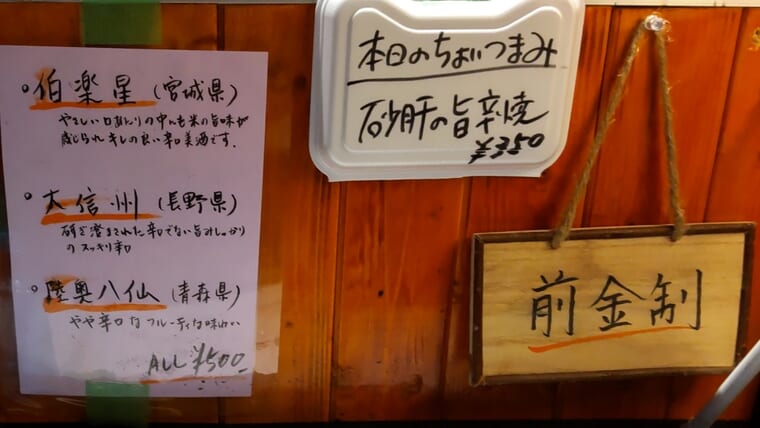 伯楽星(宮城県)
やさしい口あたりの中にも米の旨味が
感じられキレの良い辛口美酒です。
大信州(長野県)
研ぎ澄まされた辛口でない旨みしっかり
のスッキリ辛口
陸奥八仙(青森県)
やや辛口なフルーティな味わい
ALL ¥500
本日のちょいつまみ
砂肝の旨辛焼
¥350
前金制